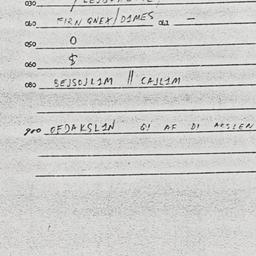 030
040 FIRN GNEX/DIMES 042 —
050 0
060 $
080 SEJSOJLIM // CAJLIM
900 OFDAKSLIN GI AF DI AKSLEN